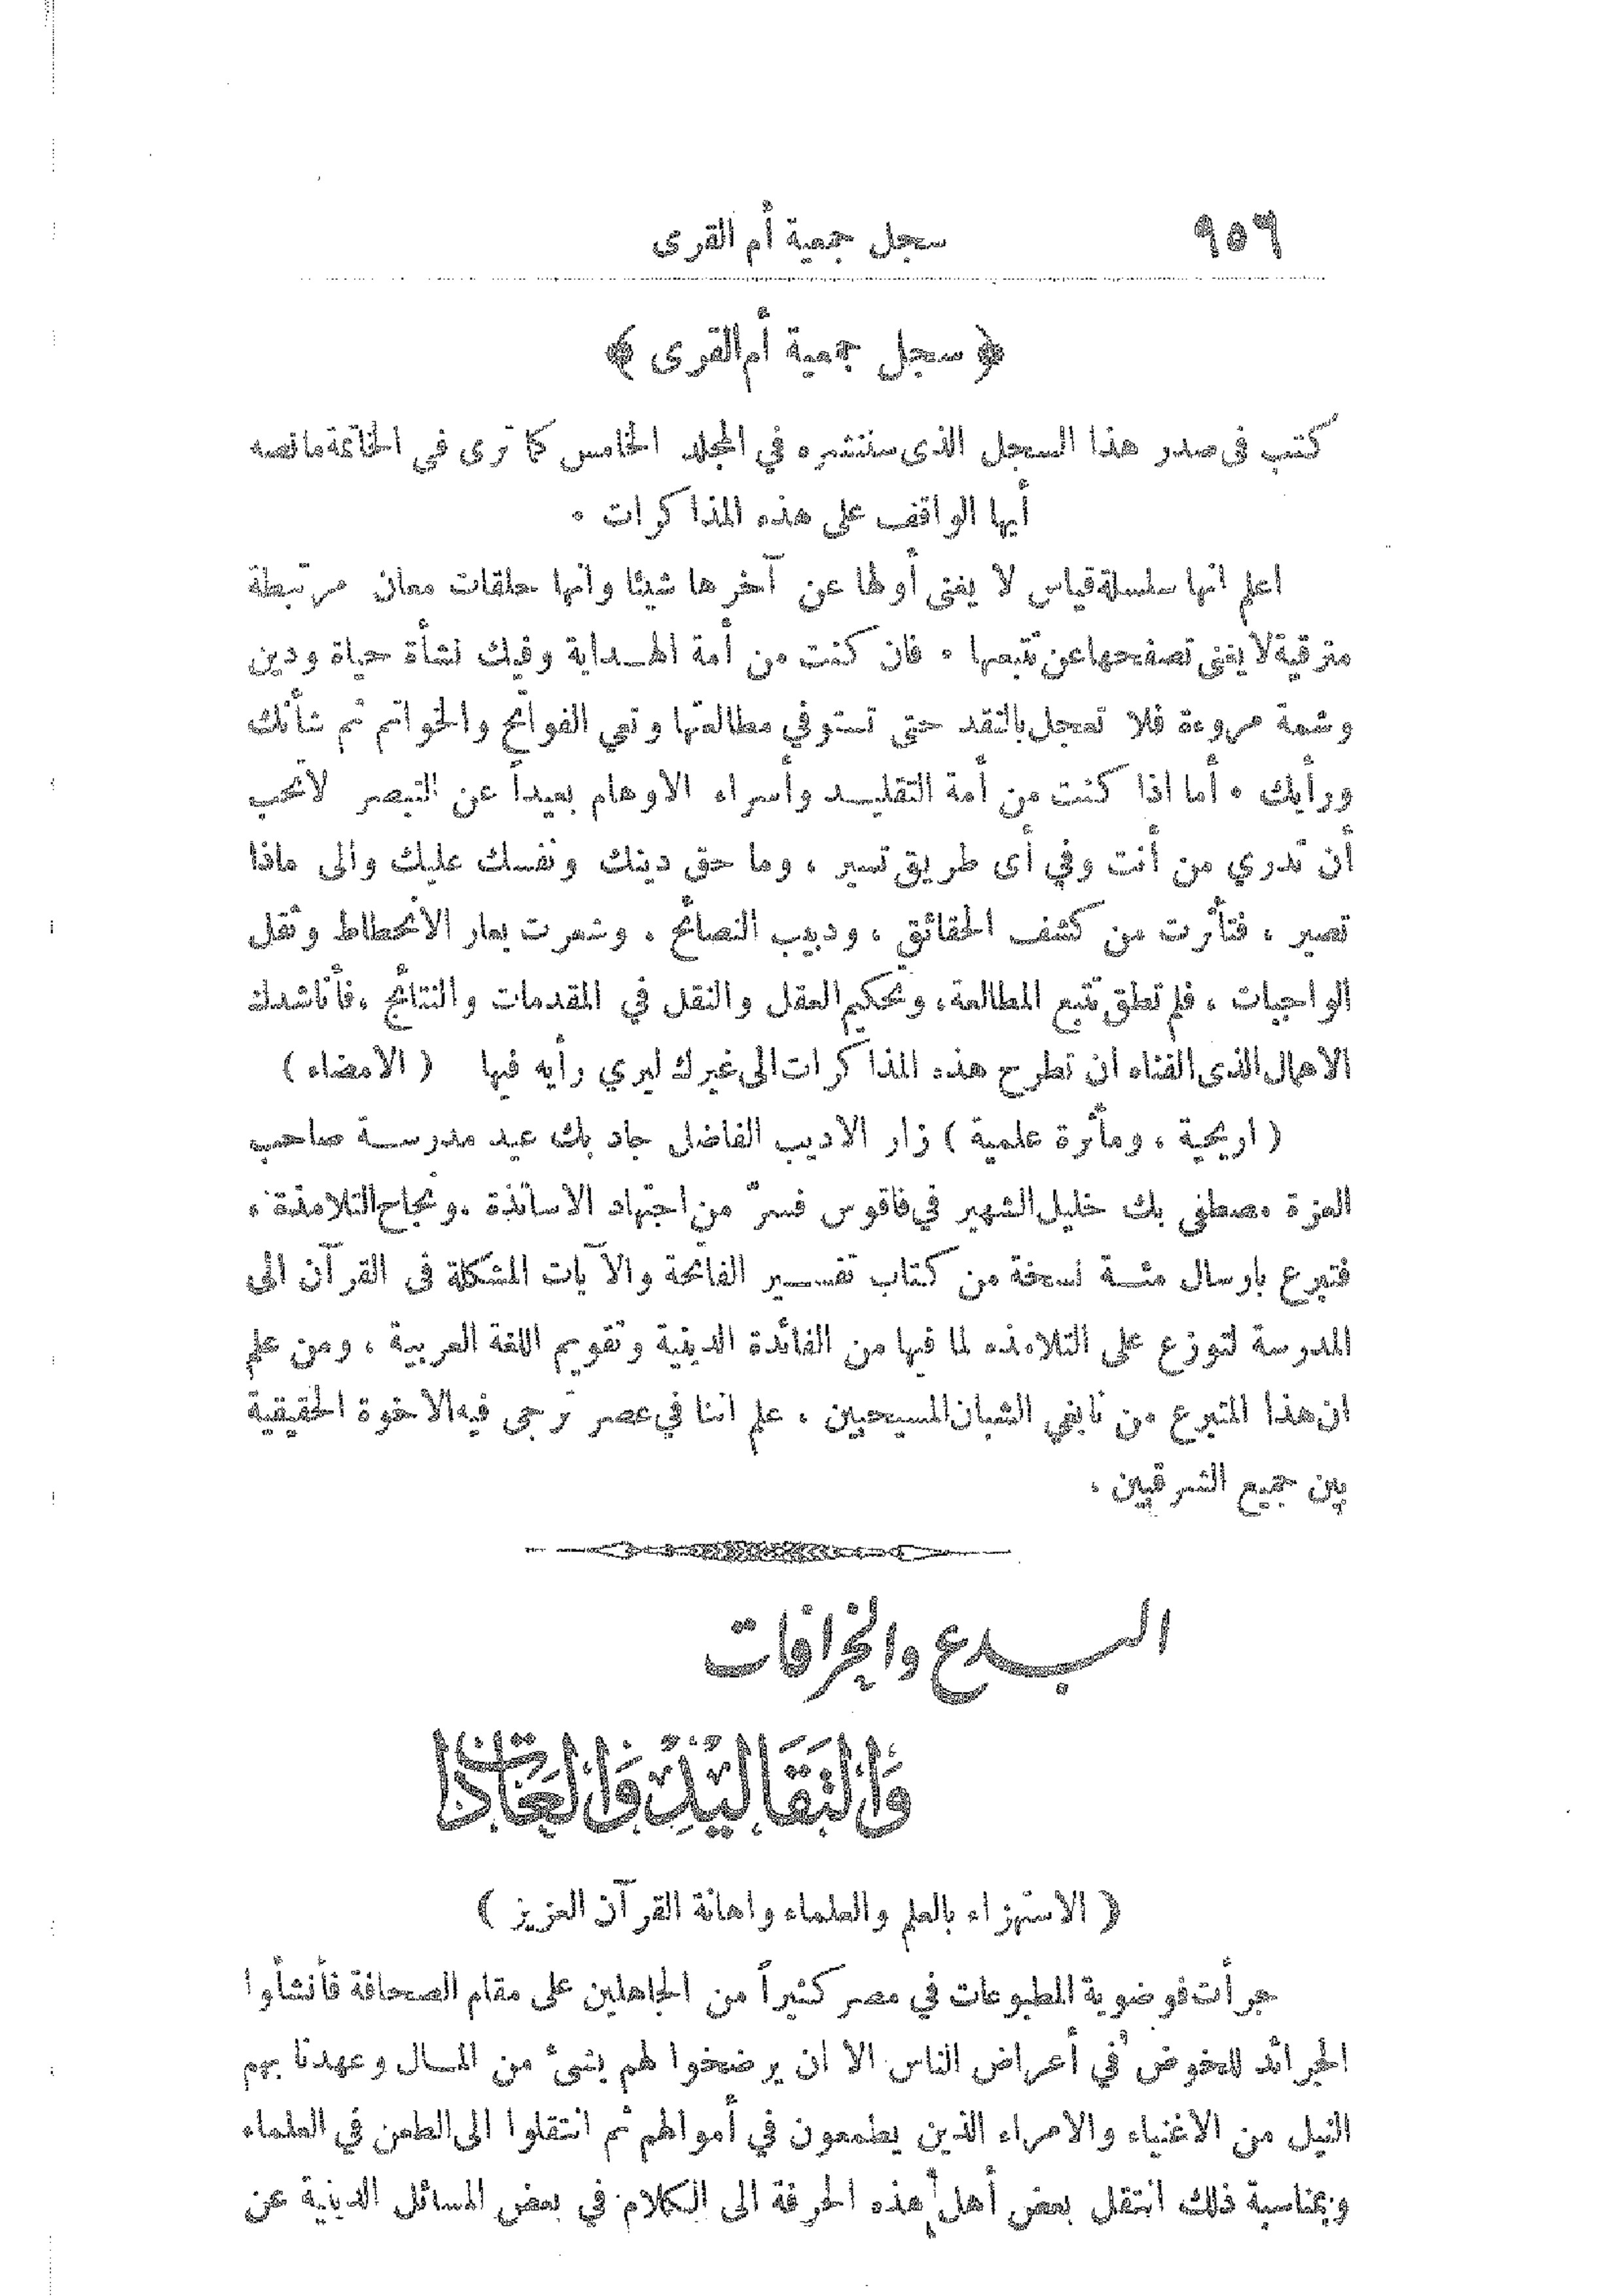 ٩٥٦
سجل جمعية أم القرى
﴿ سجل جمعية أم القرى ﴾
كتب فى صدر هذا السجل الذى سننشره في المجلد الخامس كما ترى في الخاتمة مانصه
أيها الواقف على هذه المذاكرات .
اعلم انها سلسلة قياس لا يغنى أولها عن آخرها شيئا وانها حلقات معان مرتبطة
مترقية لا يغنى تصفحها عن تتبعها . فان كنت من أمة الهـداية وفيك نشأة حياة ودين
وشمة مروءة فلا تعجل بالنقد حتى تستوفي مطالعتها وتعي الفواتح والخواتم ثم شأنك
ورأيك . أما اذا كنت من أمة التقليـد وأسراء الاوهام بعيداً عن التبصر لاتحب
أن تدري من أنت وفي أى طريق تسير ، وما حق دينك ونفسك عليك والى ماذا
تصير ، فتأثرت من كشف الحقائق ، ودبيب النصائح . وشعرت بعار الانحطاط وثقل
الواجبات ، فلم تطق تتبع المطالعة ، وتحكيم العقل والنقل في المقدمات والنتائج ، فأناشدك
الاهمال الذى الفناه ان تطرح هذه المذاكرات الى غيرك ليري رأيه فيها ( الامضاء )
( اريحية ، ومأثرة علمية ) زار الاديب الفاضل جاد بك عيد مدرسـة صاحب
العزة مصطفى بك خليل الشهير في فاقوس فسرّ من اجتهاد الاساتذة . ونجاح التلامذة ،
فتبرع بارسال مئـة نسخة من كتاب تفسـير الفاتحة والآيات المشكلة فى القرآن الى
المدرسة لتوزع على التلامذه لما فيها من الفائدة الدينية وتقويم اللغة العربية ، ومن علم
ان هذا المتبرع من نابغي الشبان المسيحيين ، علم اننا في عصر ترجى فيه الاخوة الحقيقية
بين جميع الشرقيين ،
البـدع والخرافات
وَالتَقَاليْدُ وَالعَادَات
( الاستهزاء بالعلم والعلماء واهانة القرآن العزيز )
جرأت فوضوية المطبوعات في مصر كثيراً من الجاهلين على مقام الصحافة فأنشأوا
الجرائد للخوض في أعراض الناس الا ان يرضخوا لهم بشئ من المـال وعهدنا بهم
النيل من الاغنياء والامراء الذين يطمعون في أموالهم ثم انتقلوا الى الطعن في العلماء
وبمناسبة ذلك انتقل بعض أهل هذه الحرفة الى الكلام في بعض المسائل الدينية عن